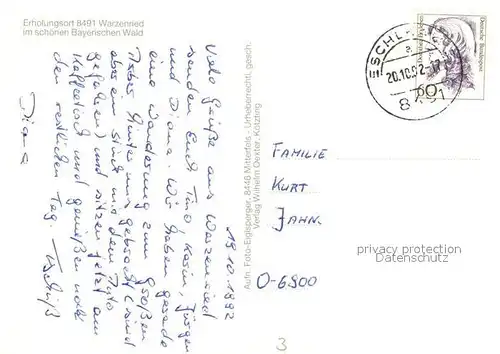 Erholungsort 8491 Warzenried
im schönen Bayerischen Wald
19.10.1992
Viele Grüße aus Warzenried
senden Euch Tino, Karin, Jürgen
und Diana. Wir haben gerade
eine Wanderung zum großen
Arber hinter uns gebracht (sind
aber ein Stück mit dem Auto
gefahren) und sitzen jetzt am
Kaffeetisch und genießen noch
den restlichen Tag. Tschüß
Diana
Aufn. Foto-Eiglsperger, 8446 Mitterfels - Urheberrechtl. gesch.
Verlag Wilhelm Dexter, Kötzting
Deutsche Bundespost
60
20.10.92-17
8491
FAMILIE
KURT
JAHN
O-6900
privacy protection
Datenschutz
3